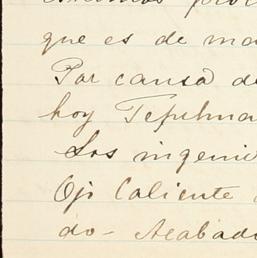 que es de ma
Por causa de
hoy
Los ingenie
Ojo Caliente
do- Acabad